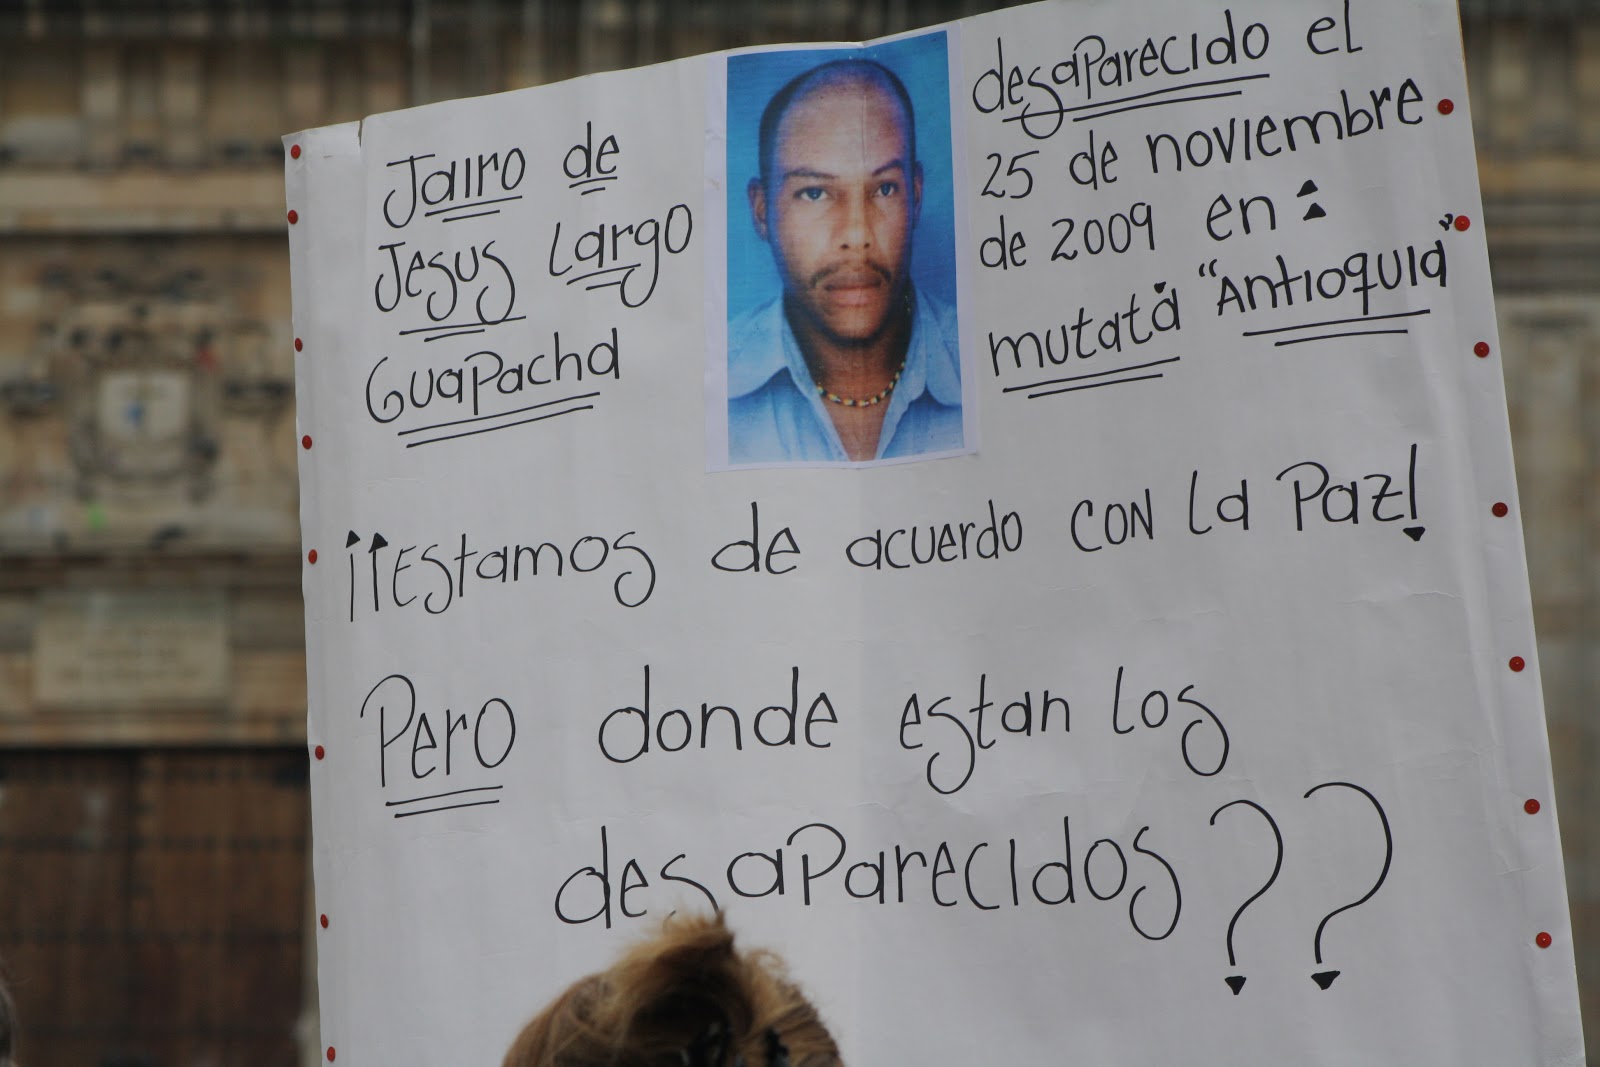 Jairo de
Jesus Largo
Guapacha
desaparecido el
25 de noviembre
de 2009 en:
mutatá "Antioquia"
¡¡Estamos de acuerdo con la Paz!
Pero donde estan los
desaparecidos??